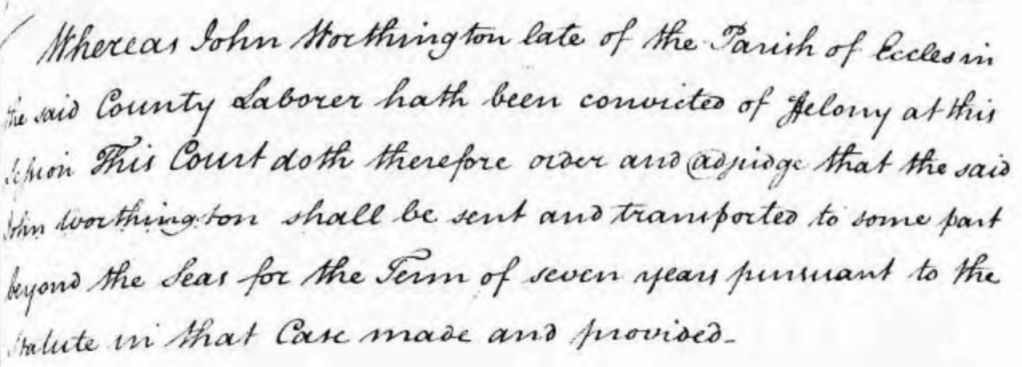 Whereas John Worthington late of the Parish of Eccles in
the said County Laborer hath been convicted of Felony at this
Session This Court doth therefore order and adjudge that the said
John Worthington shall be sent and transported to some part
beyond the Seas for the Term of seven years pursuant to the
Statute in that Case made and provided_